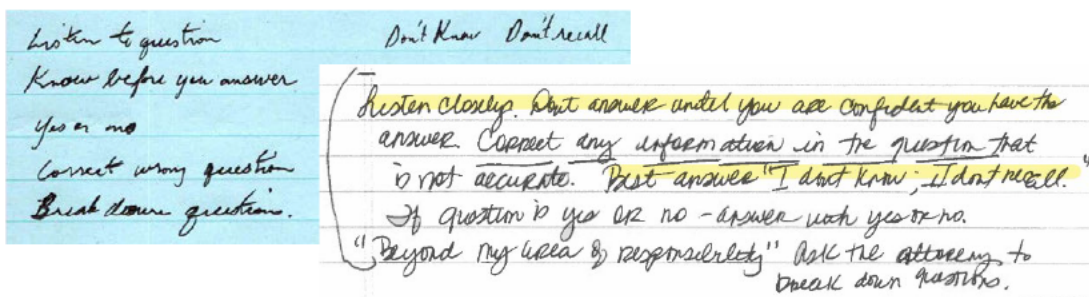 Listen to question
Don't Know Don't recall
Know before you answer
Yes or no
Correct wrong question
Break down question.
Listen closely. Dont answer until you are confident you have the
answer. Correct any information in the question that
is not accurate. Best answer "I dont know; I dont recall."
If question is yes or no - answer with yes or no.
"Beyond my area of responsibility" Ask the attorney to
break down questions.